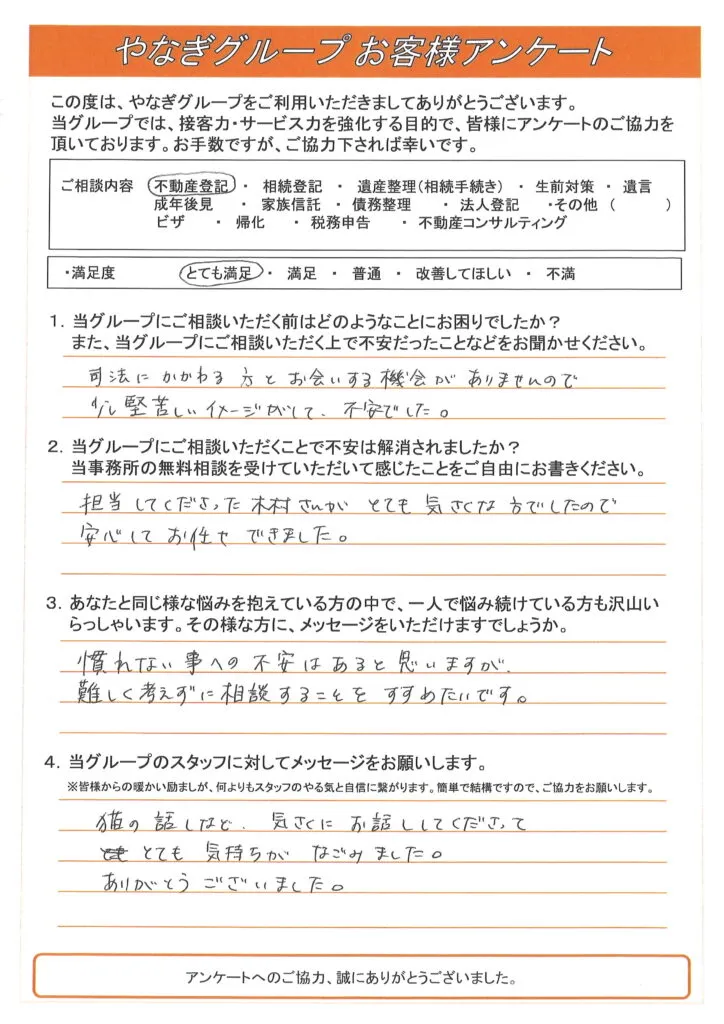 やなぎグループ お客様アンケート
この度は、やなぎグループをご利用いただきましてありがとうございます。
当グループでは、接客力・サービス力を強化する目的で、皆様にアンケートのご協力を
頂いております。お手数ですが、ご協力下されば幸いです。
ご相談内容 不動産登記 ・ 相続登記 ・ 遺産整理(相続手続き) ・ 生前対策 ・ 遺言
成年後見 ・ 家族信託 ・ 債務整理 ・ 法人登記 ・その他 ( )
ビザ ・ 帰化 ・ 税務申告 ・ 不動産コンサルティング
・満足度 とても満足 ・ 満足 ・ 普通 ・ 改善してほしい ・ 不満
1. 当グループにご相談いただく前はどのようなことにお困りでしたか?
また、当グループにご相談いただく上で不安だったことなどをお聞かせください。
司法に かかわる 方と お会いする 機会が ありませんので
少し堅苦しいイメージがして、不安でした。
2. 当グループにご相談いただくことで不安は解消されましたか?
当事務所の無料相談を受けていただいて感じたことをご自由にお書きください。
担当 してくださった 木村さんが とても 気さくな 方でしたので
安心して お任せ できました。
3. あなたと同じ様な悩みを抱えている方の中で、一人で悩み続けている方も沢山い
らっしゃいます。その様な方に、メッセージをいただけますでしょうか。
慣れない 事への 不安は あると 思いますが、
難しく 考えずに 相談することを すすめたいです。
4. 当グループのスタッフに対してメッセージをお願いします。
※皆様からの暖かい励ましが、何よりもスタッフのやる気と自信に繋がります。簡単で結構ですので、ご協力をお願いします。
猫の 話しなど、気さくに お話ししてくださって
とても 気持ちが なごみました。
ありがとう ございました。
アンケートへのご協力、誠にありがとうございました。